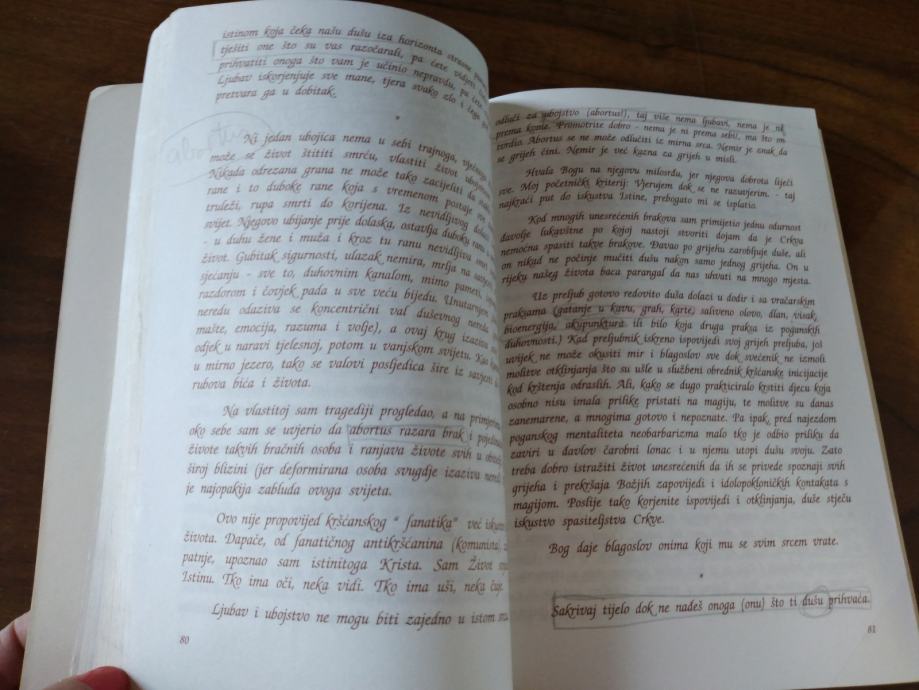 istinom koja čeka našu dušu iza horizonta strasne
tješiti one što su vas razočarali, pa ćete vidjeti
prihvatiti onoga što vam je učinio nepravdu, pa ćete
Ljubav iskorjenjuje sve mane, tjera svako zlo i
pretvara ga u dobitak.
*
abortus
Ni jedan ubojica nema u sebi trajnoga, vječnoga
može se život štititi smrću, vlastiti život
Nikada odrezana grana ne može tako zacijeliti da
rane i to duboke rane koja s vremenom postaje sve
truleži, rupa smrti do korijena. Iz nevidljivog dolazi
svijet. Njegovo ubijanje prije dolaska, ostavlja duboku ranu
- u duhu žene i muža i kroz tu ranu nevidljiva smrt
život. Gubitak sigurnosti, ulazak nemira, mrlja na
sjećanju - sve to, duhovnim kanalom, mimo pameti,
razdorom i čovjek pada u sve veću bijedu. Unutarnjem
neredu odaziva se koncentrični val duševnog nereda
mašte, emocija, razuma i volje), a ovaj krug izaziva
odjek u naravi tjelesnoj, potom u vanjskom svijetu. Kao
u mirno jezero, tako se valovi posljedica šire iz savjesti
rubova bića i života.
Na vlastitoj sam tragediji progledao, a na primjerima
oko sebe sam se uvjerio da abortus razara brak i
živote takvih bračnih osoba i ranjava živote svih u
široj blizini (jer deformirana osoba svugdje izaziva
je najopakija zabluda ovoga svijeta.
Ovo nije propovijed kršćanskog " fanatika" već
života. Dapače, od fanatičnog antikršćanina (komunista),
patnje, upoznao sam istinitoga Krista. Sam Život
Istinu. Tko ima oči, neka vidi. Tko ima uši, neka čuje.
Ljubav i ubojstvo ne mogu biti zajedno u istom
80
odluči za ubojstvo (abortus!), taj više nema ljubavi, nema je ni
prema kome. Promotrite dobro - nema je ni prema sebi, ma što on
tvrdio. Abortus se ne može odlučiti iz mirna srca. Nemir je znak da
se grijeh čini. Nemir je već kazna za grijeh u misli.
Hvala Bogu na njegovu milosrđu, jer njegova dobrota liječi
sve. Moj početnički kriterij: Vjerujem dok se ne razuvjerim. - taj
najkraći put do iskustva Istine, prebogato mi se isplatio.
Kod mnogih unesrećenih brakova sam primijetio jednu odurnost
đavolje lukavštine po kojoj nastoji stvoriti dojam da je Crkva
nemoćna spasiti takve brakove. Đavao po grijehu zarobljuje duše, ali
on nikad ne počinje mučiti dušu nakon samo jednog grijeha. On u
rijeku našeg života baca parangal da nas uhvati na mnogo mjesta.
Uz preljub gotovo redovito duša dolazi u dodir i sa vračarskim
praksama (gatanje u kavu, grah, karte, saliveno olovo, dlan, visak,
bioenergija, akupunktura ili bilo koja druga praksa iz poganskih
duhovnosti.) Kad preljubnik iskreno ispovijedi svoj grijeh preljuba, još
uvijek ne može okusiti mir i blagoslov sve dok svećenik ne izmoli
molitve otklinjanja što su ušle u službeni obrednik kršćanske inicijacije
kod krštenja odraslih. Ali, kako se dugo prakticiralo krstiti djecu koja
osobno nisu imala prilike pristati na magiju, te molitve su danas
zanemarene, a mnogima gotovo i nepoznate. Pa ipak, pred najezdom
poganskog mentaliteta neobarbarizma malo tko je odbio priliku da
zaviri u đavlov čarobni lonac i u njemu utopi dušu svoju. Zato
treba dobro istražiti život unesrećenih da ih se privede spoznaji svih
grijeha i prekršaja Božjih zapovijedi i idolopokloničkih kontakata s
magijom. Poslije tako korjenite ispovijedi i otklinjanja, duše stječu
iskustvo spasiteljstva Crkve.
Bog daje blagoslov onima koji mu se svim srcem vrate.
*
Sakrivaj tijelo dok ne nađeš onoga (onu) što ti dušu prihvaća.
81